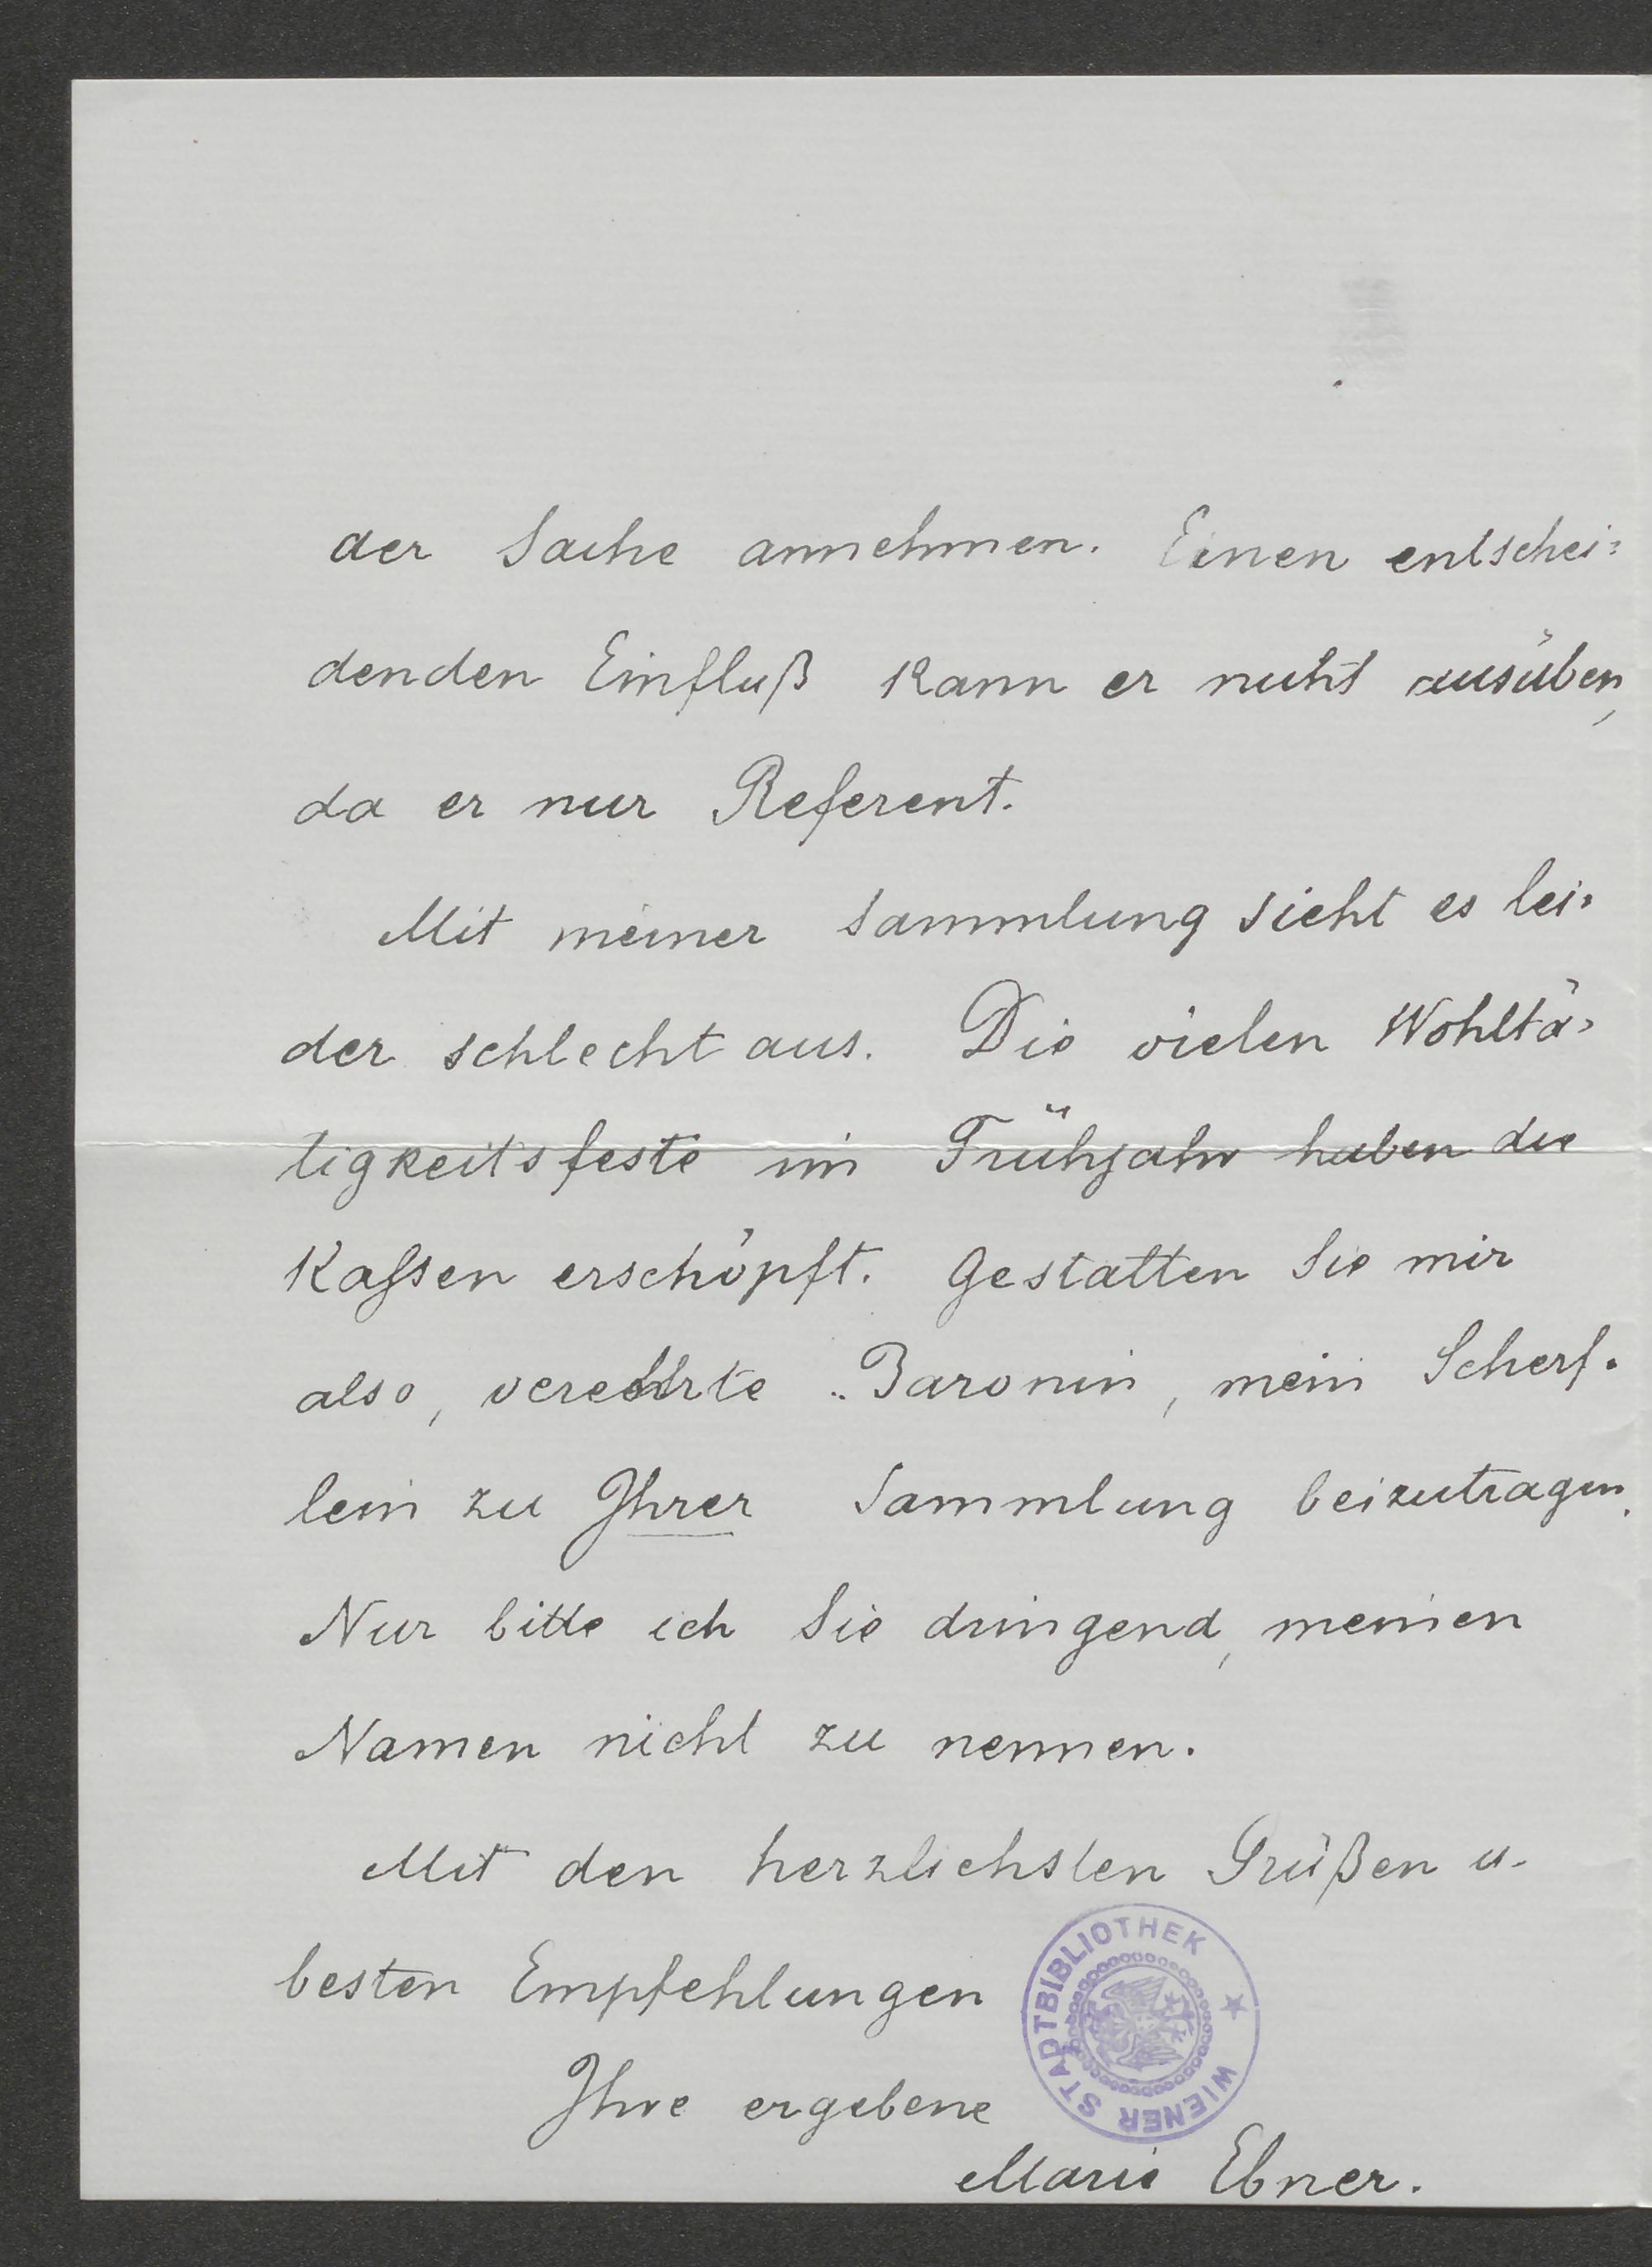 der Sache annehmen. Einen entschei=
denden Einfluß kann er nicht ausüben,
da er nur Referent.
Mit meiner Sammlung sieht es lei=
der schlecht aus. Die vielen Wohltä=
tigkeitsfeste im Frühjahr haben die
Kassen erschöpft. Gestatten Sie mir
also, verehrte Baronin, mein Scherf=
lein zu Ihrer Sammlung beizutragen.
Nur bitte ich Sie dringend, meinen
Namen nicht zu nennen.
Mit den herzlichsten Grüßen u.
besten Empfehlungen
Ihre ergebene
Marie Ebner.
WIENER STADTBIBLIOTHEK